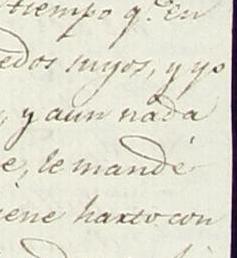 tiempo q.e en
edos suyos, y yo
, y aun nada
e, le mandé
iene harto con